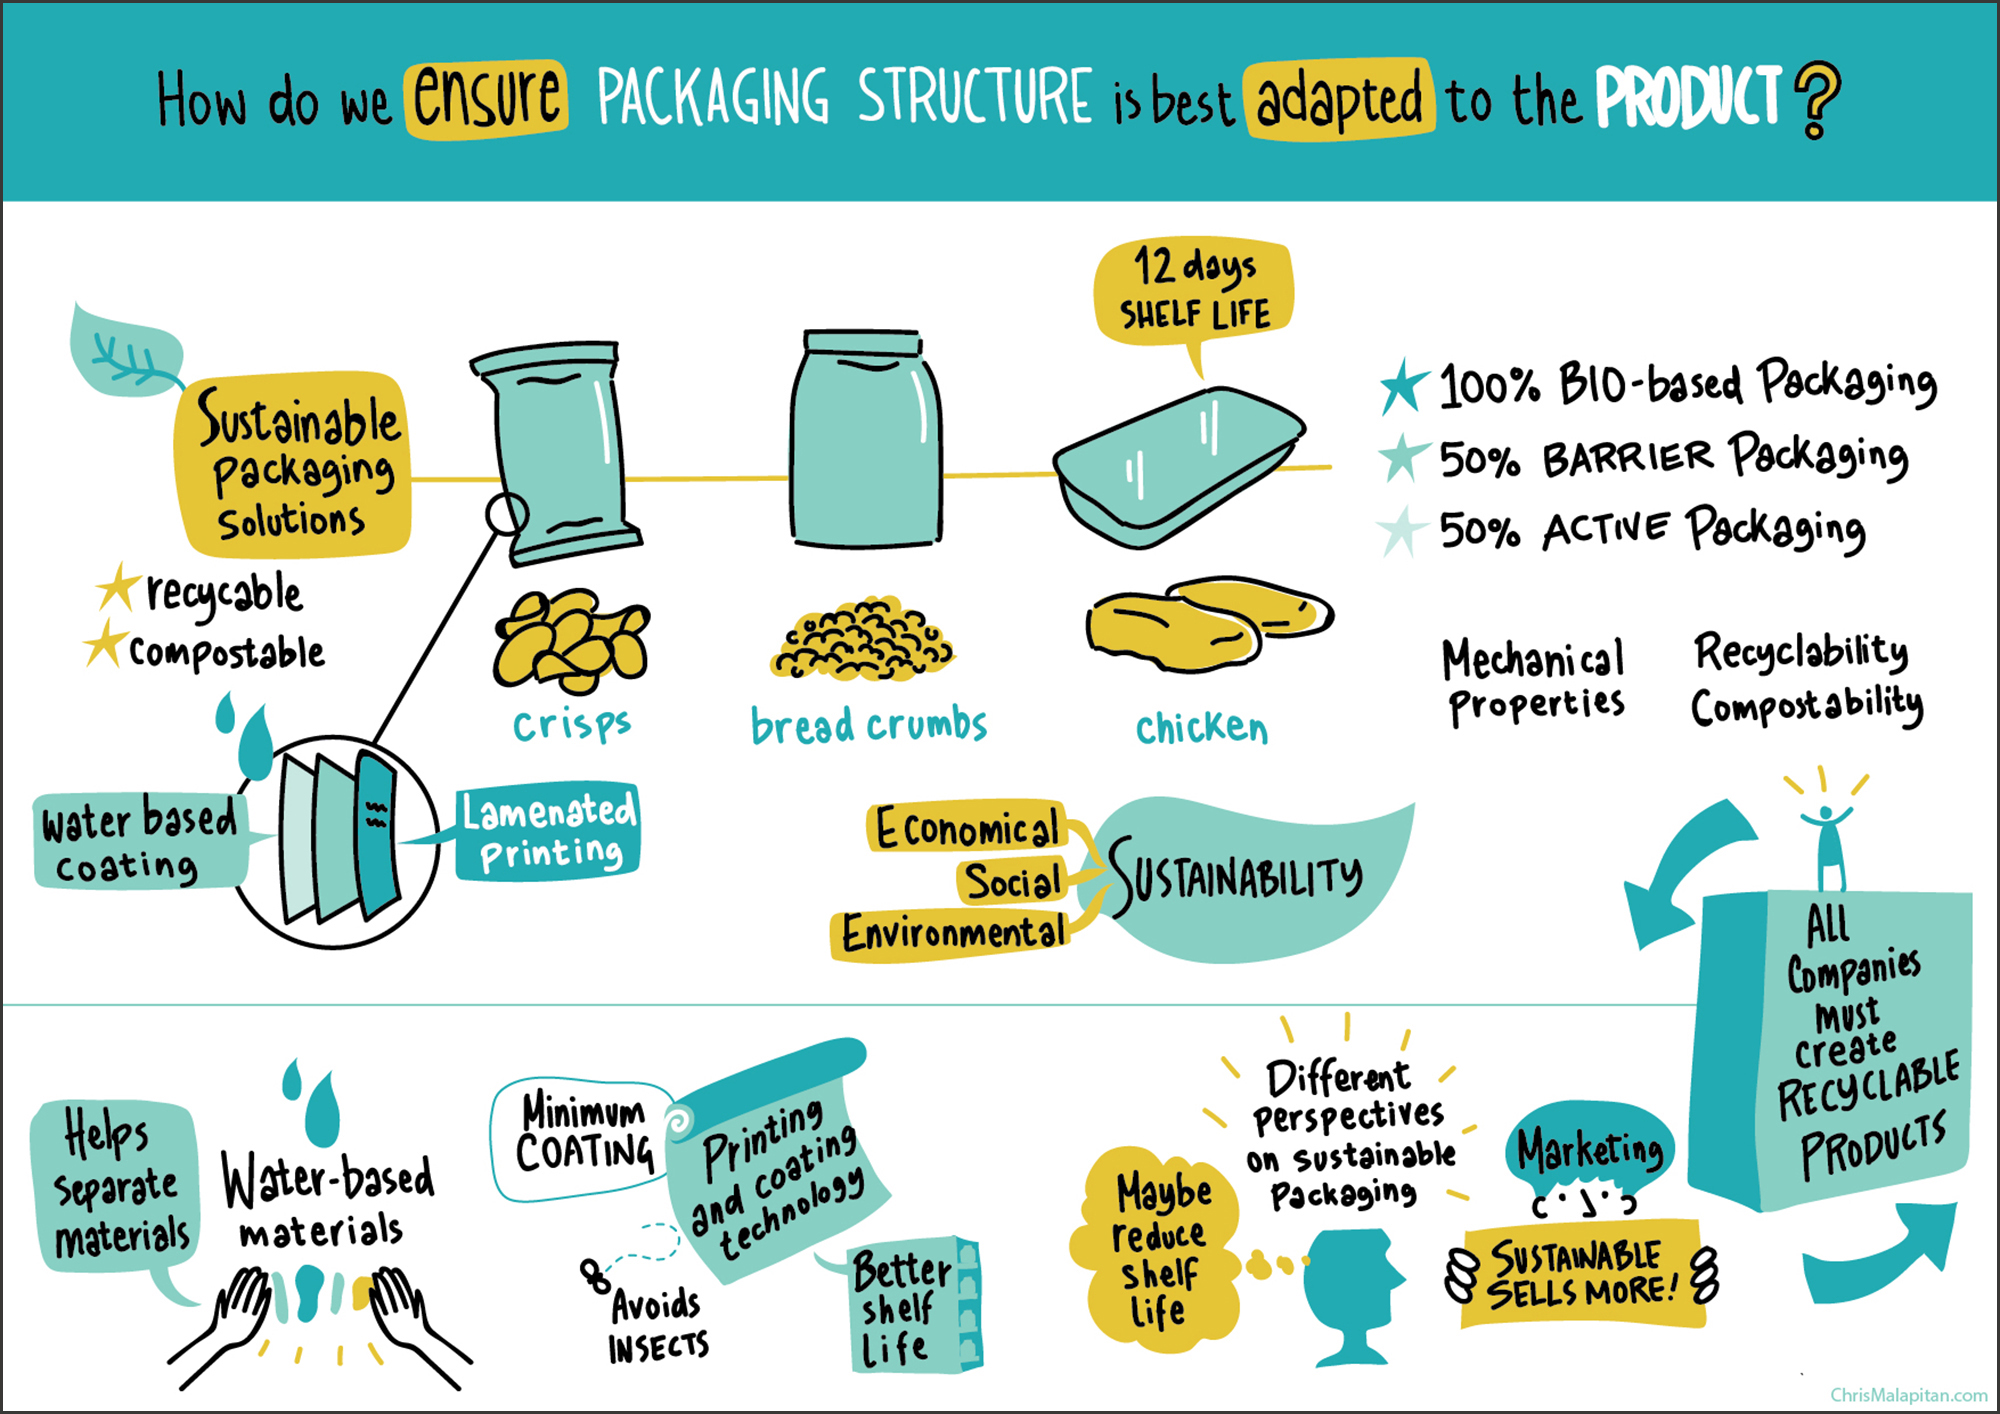 How do we ensure PACKAGING STRUCTURE is best adapted to the PRODUCT?
12 days
SHELF LIFE
Sustainable
packaging
solutions
recycable
compostable
crisps
bread crumbs
chicken
100% BIO-based Packaging
50% BARRIER Packaging
50% ACTIVE Packaging
Mechanical
Properties
Recyclability
Compostability
water based
coating
Lamenated
printing
Economical
Social
Environmental
SUSTAINABILITY
ALL
Companies
must
create
RECYCLABLE
PRODUCTS
Helps
separate
materials
Water-based
materials
Minimum
COATING
Printing
and coating
technology
Avoids
INSECTS
Better
shelf
life
Different
perspectives
on sustainable
packaging
Maybe
reduce
shelf
life
Marketing
SUSTAINABLE
SELLS MORE!
ChrisMalapitan.com